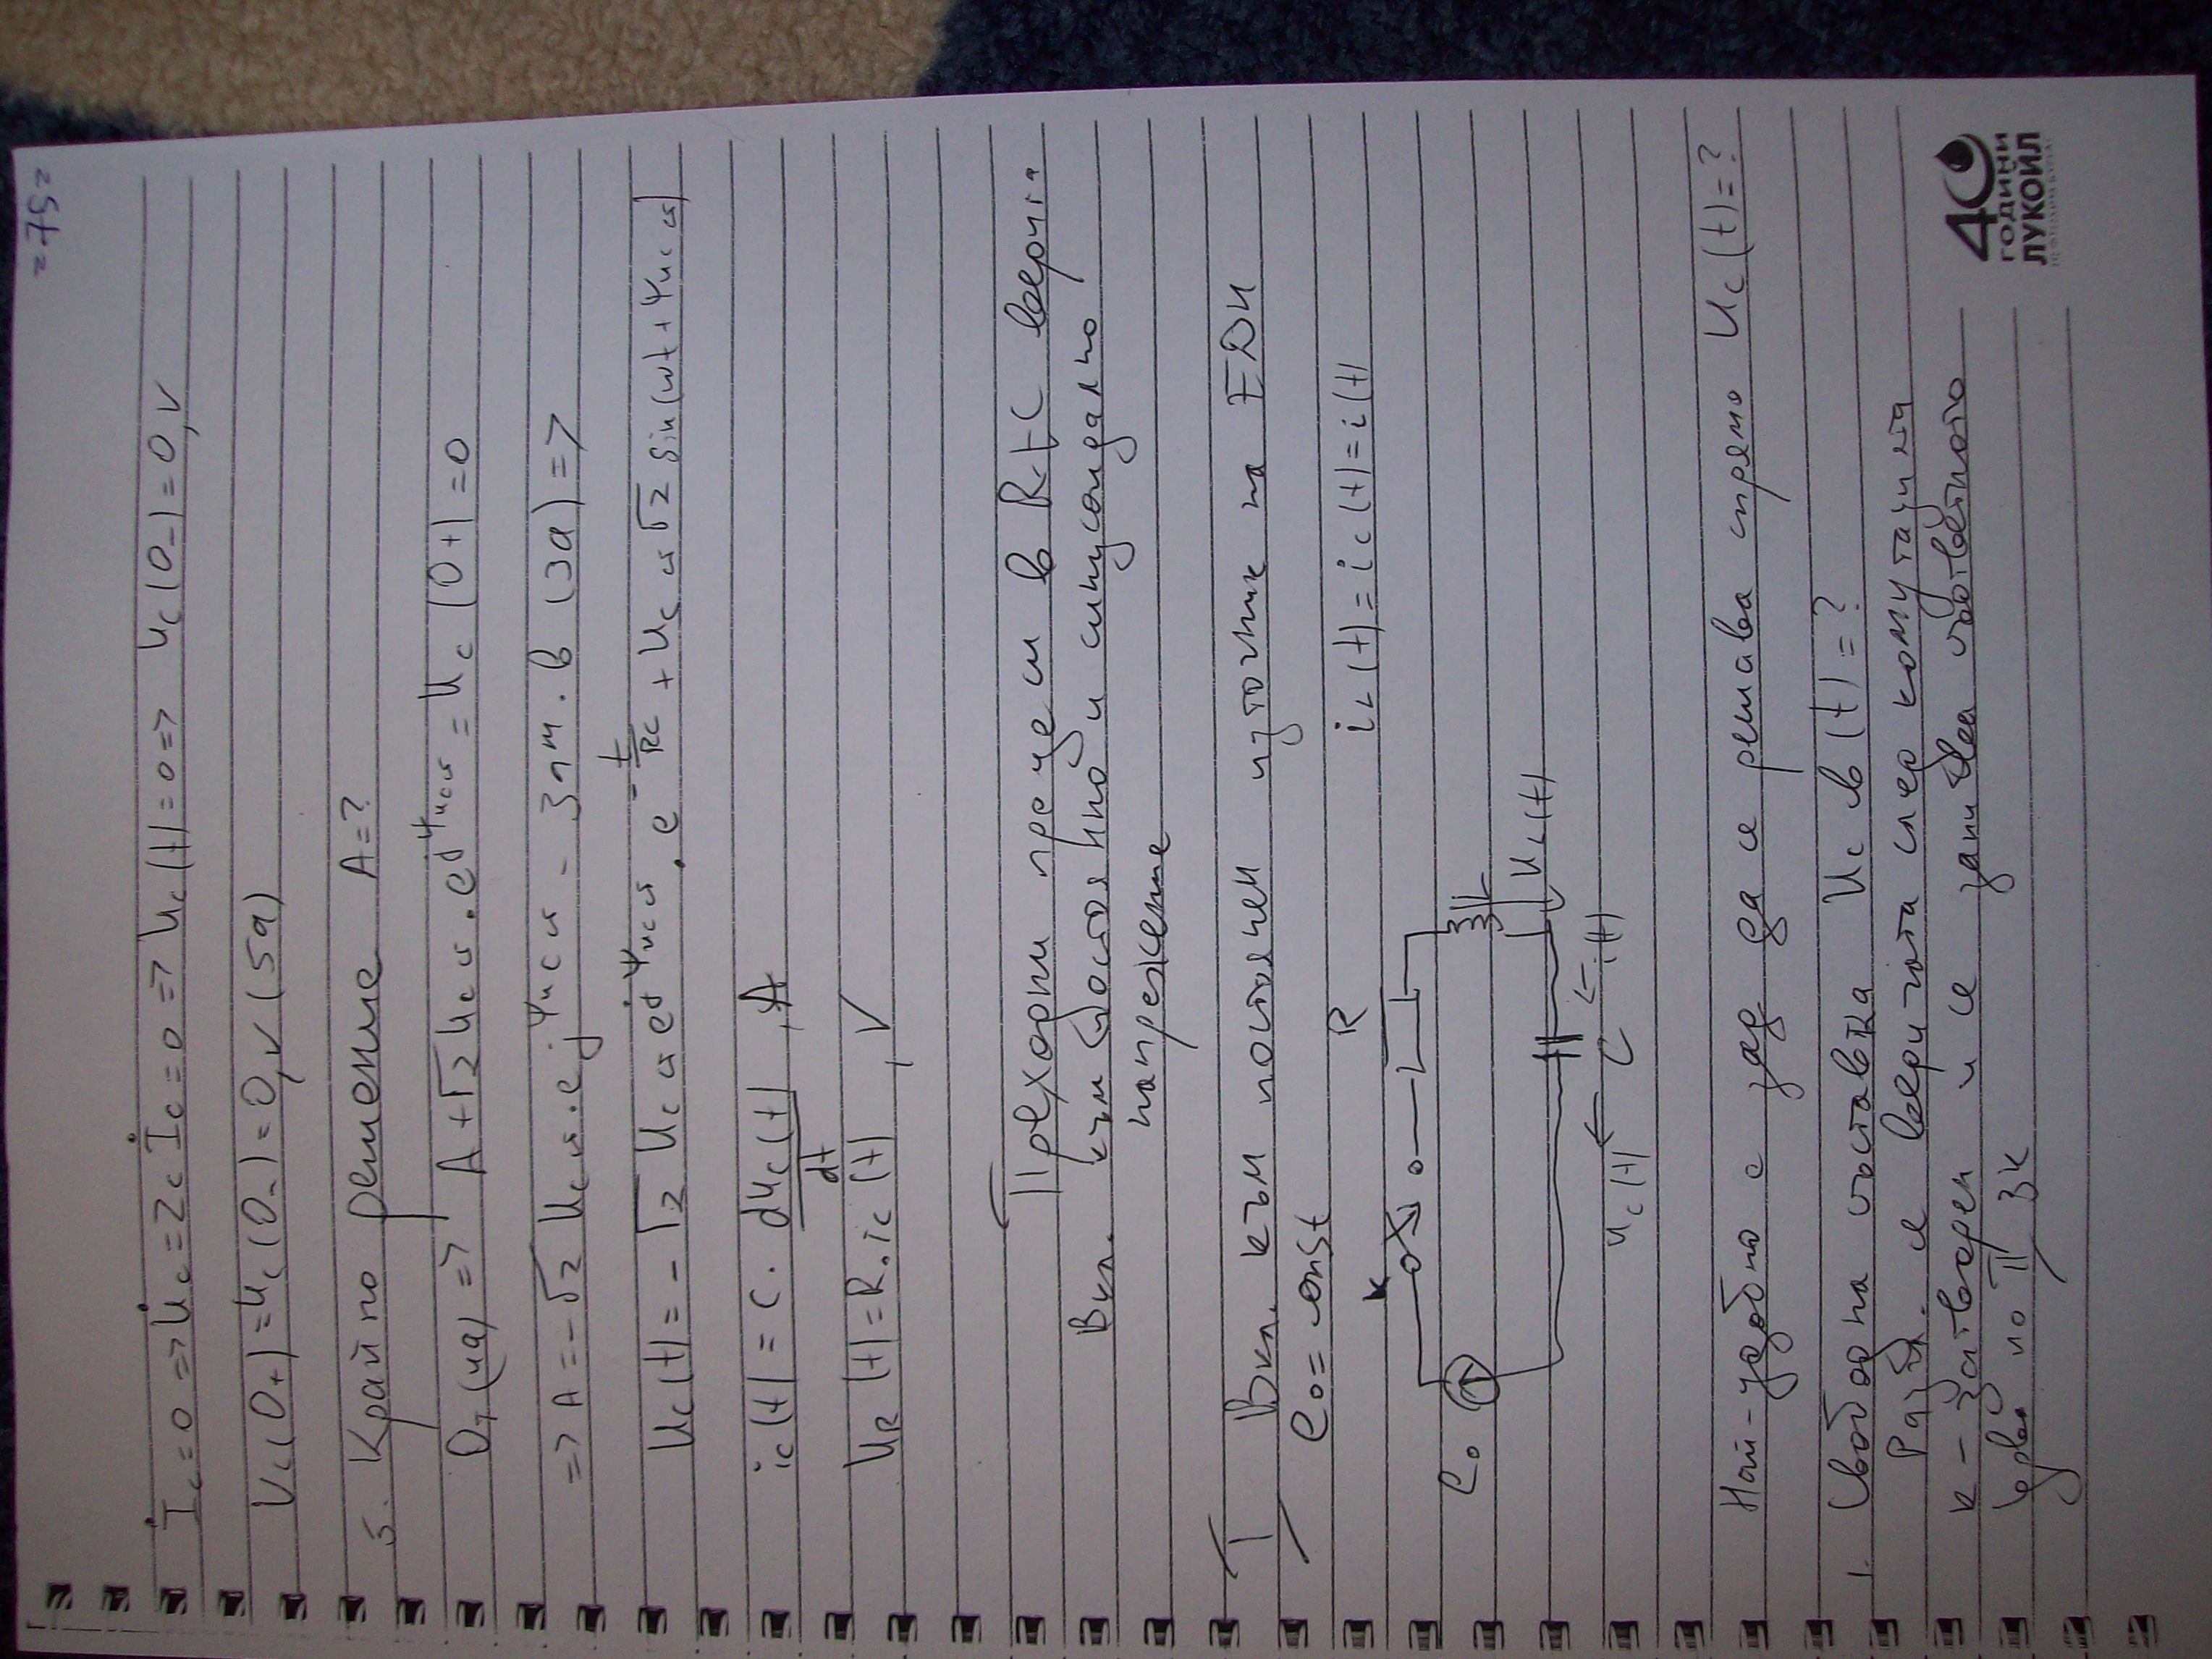 =275=
İc=0 => U̇c=Zc İc=0 => Uc(t)=0 => uc(0-)=0,V
Uc(0+)=Uc(0-)=0,V (5а)
5. Крайно решение A=?
От (4а) => A+√2 Uсу.e^jψucy=Uc(0+)=0
=> A=-√2 Uсу.e^jψucy - Зам. в (3а) =>
Uc(t)=-√2 Uсу e^jψucy.e^-t/RC+Uсу√2 sin(ωt+ψucy)
ic(t)=C.duc(t)/dt,A
UR(t)=R.ic(t),V
Преходни процеси в RLC верига
Вкл. към постоянно и синусоидално
напрежение
I Вкл. към постоянен източник на ЕДН
e0=const
iL(t)=ic(t)=i(t)
K
R
e0
L
UL(t)
uc(t)
C
i(t)
Най-удобно е зад да се решава спрямо Uc(t)=?
1. Свободна съставка Uсв(t)=?
Разгл. се веригата след комутация
к-затворен и се записва съответното
у-ве по II ЗК
40
ГОДИНИ
ЛУКОЙЛ